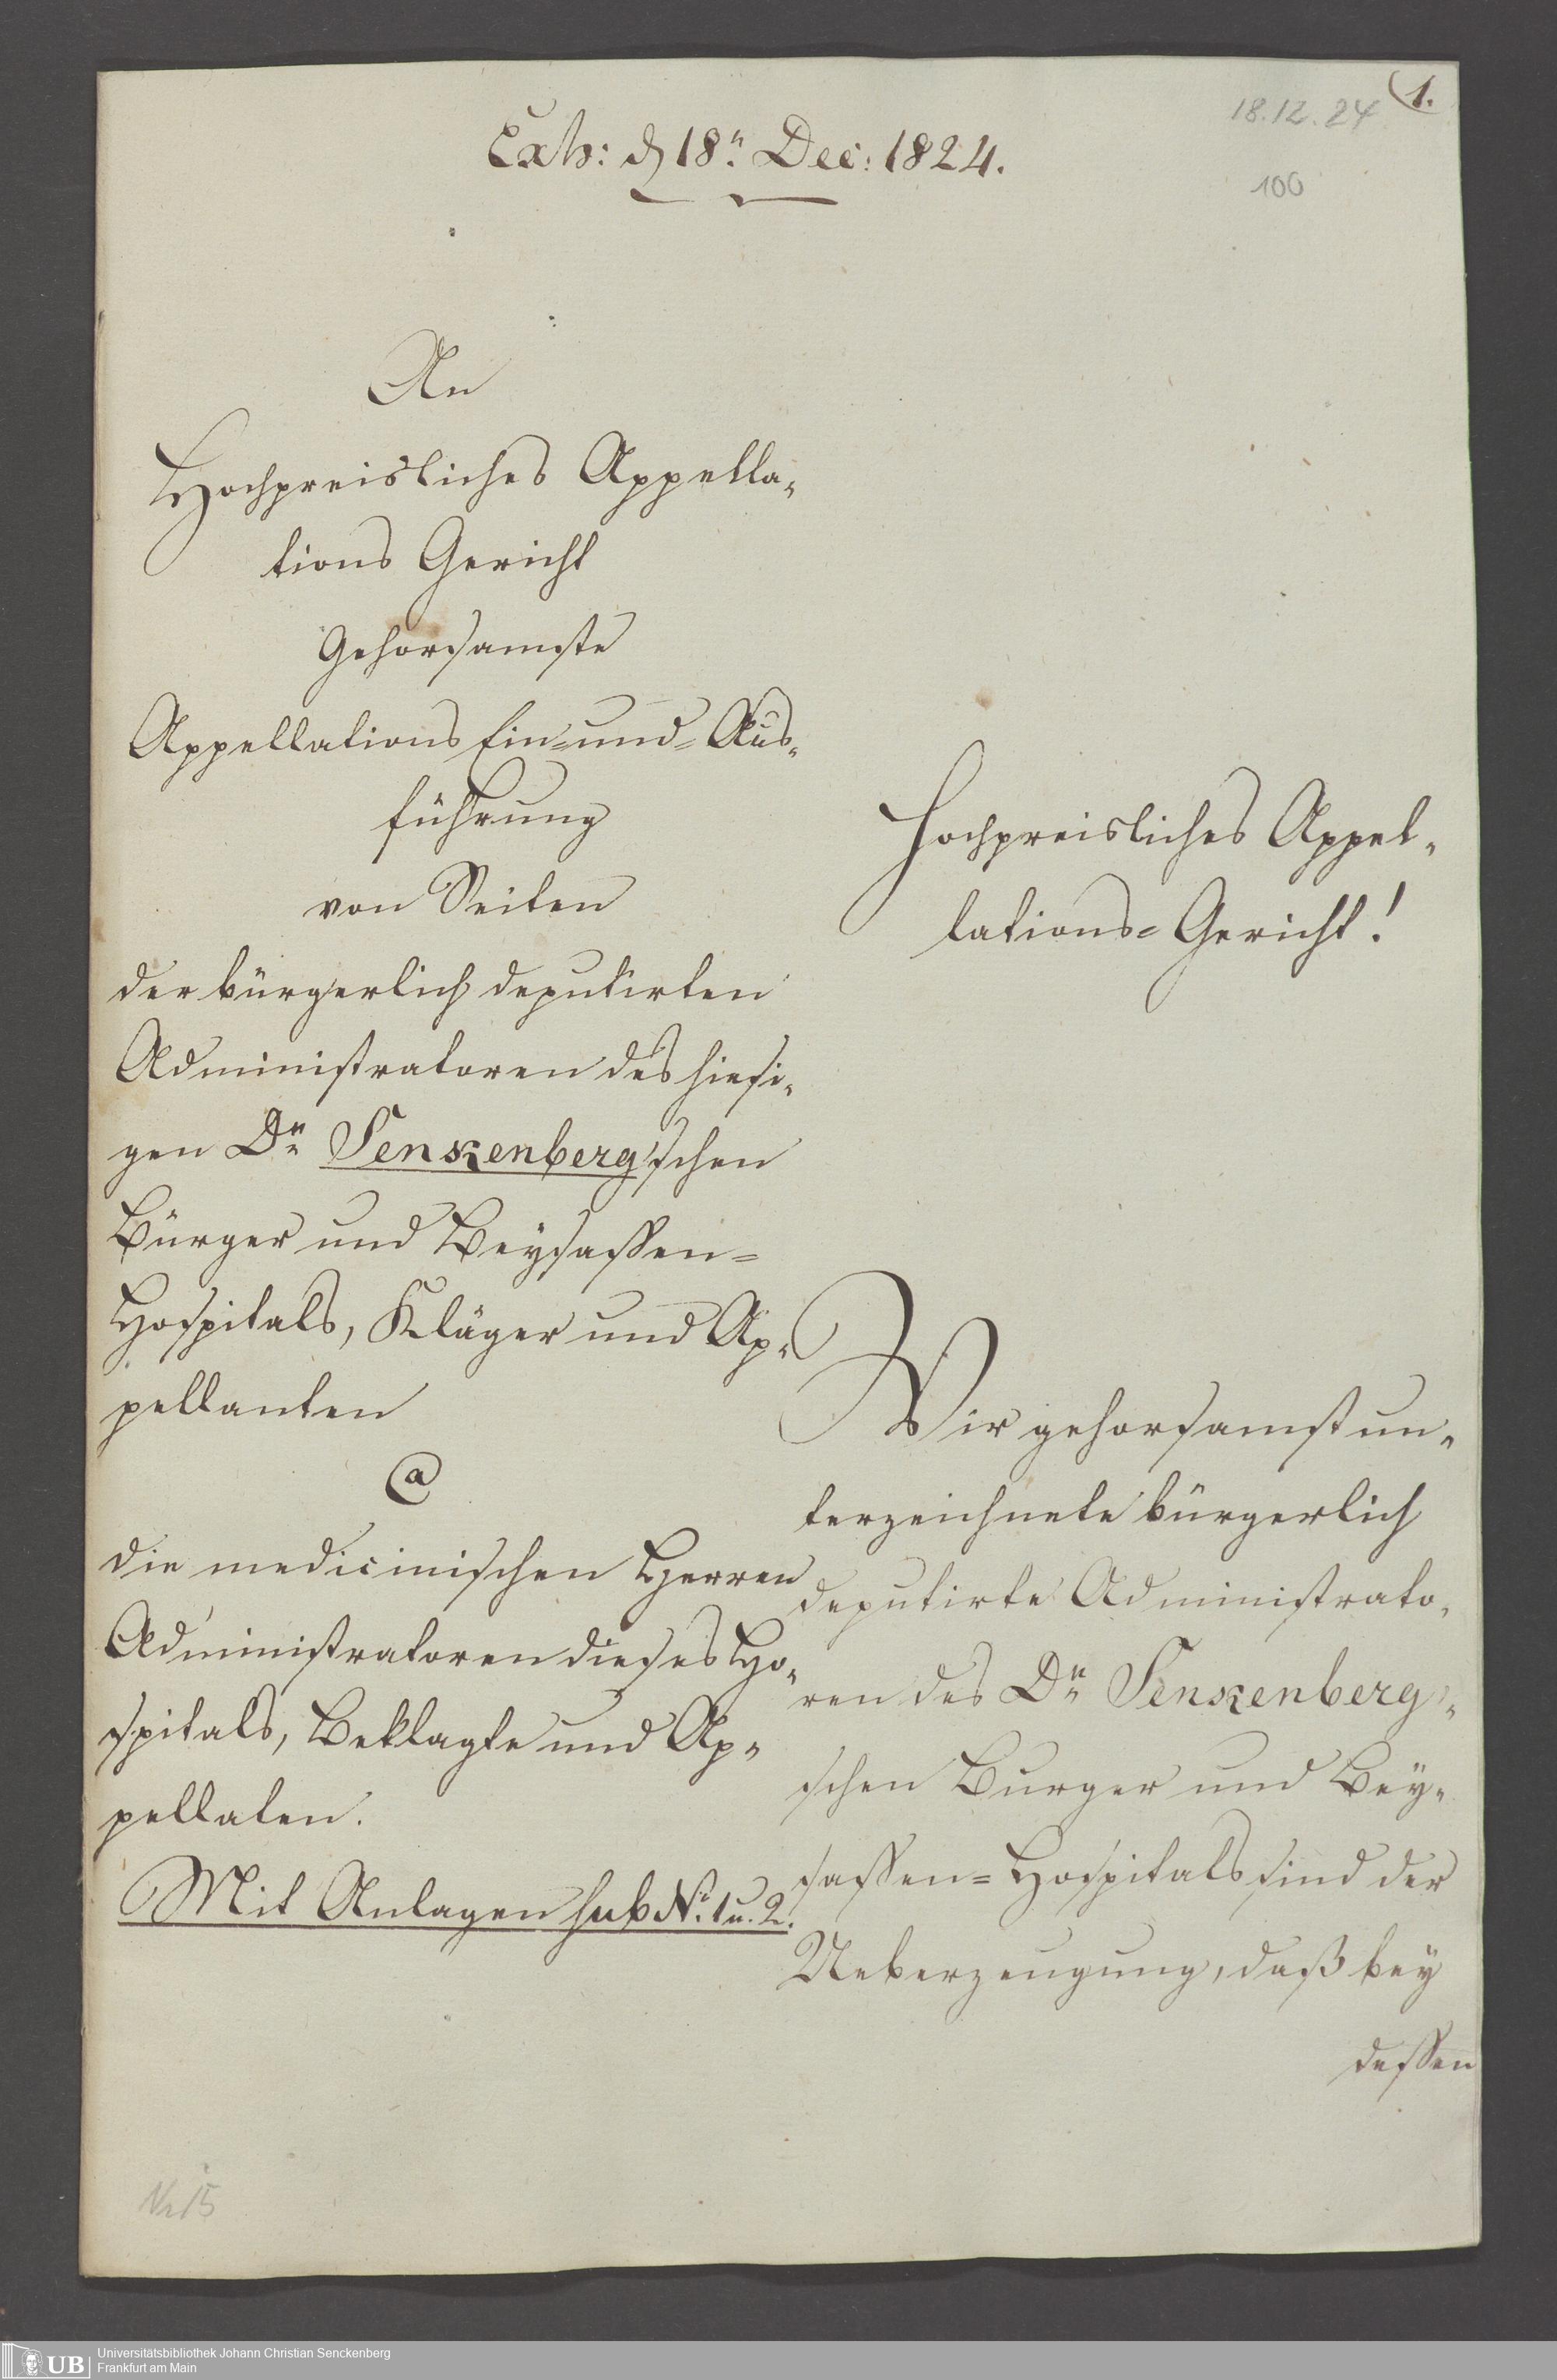 1.
18.12.24
Exh: d 18n. Dec: 1824.
100
An
Hochpreisliches Appella-
tions Gericht
Gehorsamste
Appellations Ein- und- Aus-
führung
von Seiten
der bürgerlich deputirten
Administratoren des hiesi-
gen Dr Senkenberg'schen
Bürger und Beysassen-
Hospitals, Kläger und Ap-
pellanten
@
die medicinischen Herren
Administratoren dieses Ho-
spitals, Beklagte und Ap-
pellaten.
Mit Anlagen sub No. 1 u. 2.
Hochpreisliches Appel-
lations-Gericht!
Wir gehorsamst un-
terzeichnete bürgerlich
deputirte Administrato-
ren des Dr Senkenberg'-
schen Burger und Bey-
sassen-Hospitals sind der
Ueberzeugung, daß bey
dessen
Nr 15
UB
Universitätsbibliothek Johann Christian Senckenberg
Frankfurt am Main